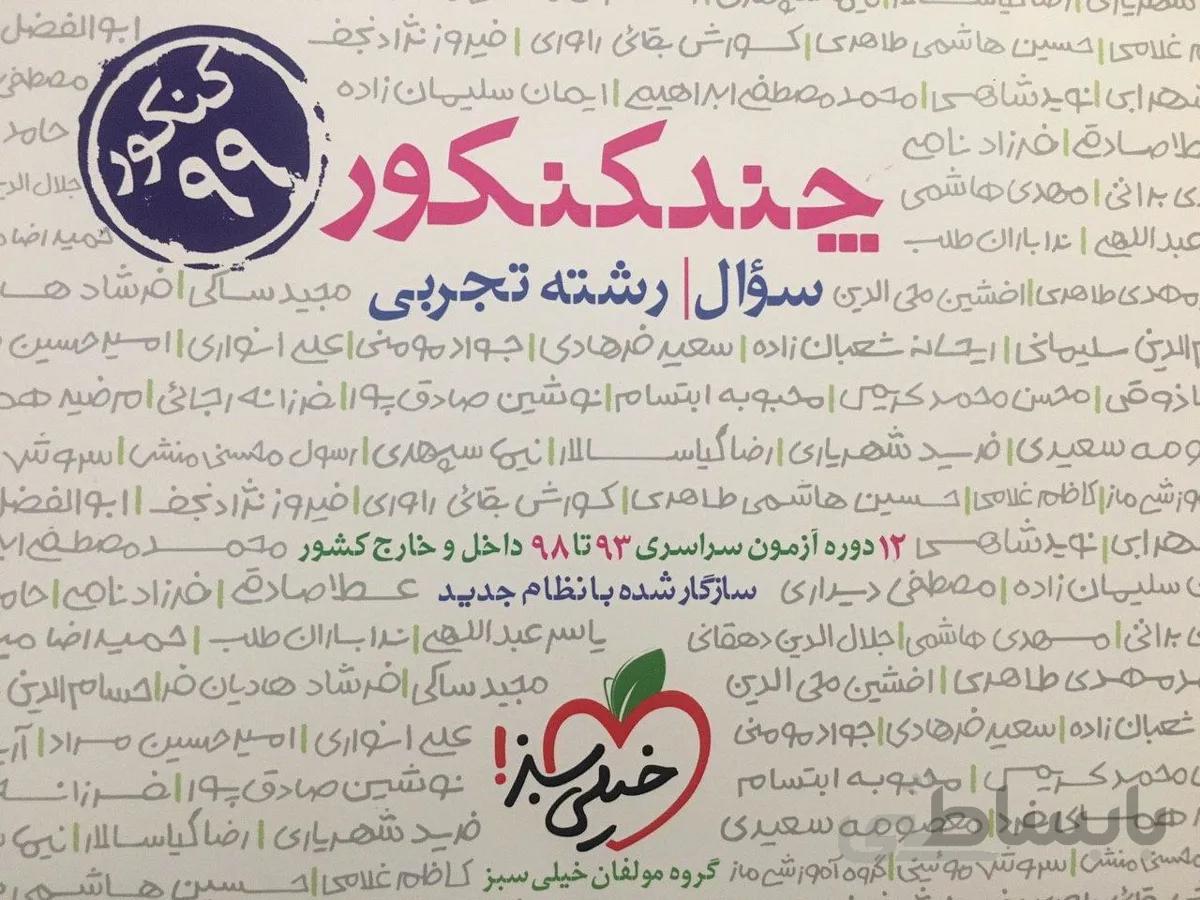 حسین هاشمی طاهری | کورش بقائی راوری | فیروز نژادنجف | ابوالفضل
نوید شاهی | محمد مصطفی ابراهیم | ایمان سلیمان زاده | مصطفی
کنکور
۹۹
عطا صادقی | فرزاد نامی | حامد
چند کنکور
مهدی هاشمی | جلال الدین
عبداللهی | ندا باران طلب | حمیدرضا
سؤال | رشته تجربی
مهدی طاهری | افشین محی الدین
مجید ساکی | فرشاد
الدین سلیمانی | ریحانه شعبان زاده | سعید فرهادی | جواد مومنی | علی انواری | امیرحسین
ذوقی | محسن محمدکریمی | محبوبه ابتسام | نوشین صادق پور | فرزانه رجائی | مرضیه
سعیدی | فرید شهریاری | رضا گیاسالار | نیما سپهری | رسول محسنی منش | سروش
کاظم غلامی | حسین هاشمی طاهری | کورش بقائی راوری | فیروز نژادنجف | ابوالفضل
نوید شاهی | محمد مصطفی
۱۲ دوره آزمون سراسری ۹۳ تا ۹۸ داخل و خارج کشور
سلیمان زاده | مصطفی دیداری | عطا صادقی | فرزاد نامی | حامد
سازگار شده با نظام جدید
براتی | مهدی هاشمی | جلال الدین دهقانی
یاسر عبداللهی | ندا باران طلب | حمیدرضا
مهدی طاهری | افشین محی الدین
مجید ساکی | فرشاد هادیان فر | حسام الدین
شعبان زاده | سعید فرهادی | جواد مومنی
علی انواری | امیرحسین مراد
محمدکریمی | محبوبه ابتسام
نوشین صادق پور | فرزانه
خیلی سبز!
معصومه سعیدی
فرید شهریاری | رضا گیاسالار | نیما
محسنی منش | سروش موئینی | گروه آموزشی ماز
گروه مولفان خیلی سبز
کاظم غلامی | حسین هاشمی